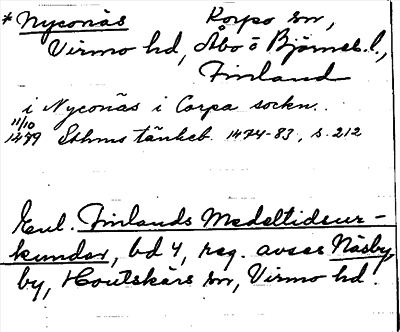 * Nyconäs Korpo sn,
Virmo hd, Åbo o Björneb. l.,
Finland
i Nyconäs i Corpa sockn.
11/10
1479 Sthms tänkeb. 1474-83, s. 212
Enl. Finlands Medeltidsur-
kunder, bd 4, reg. avses Näsby
by, Houtskärs sn, Virmo hd.